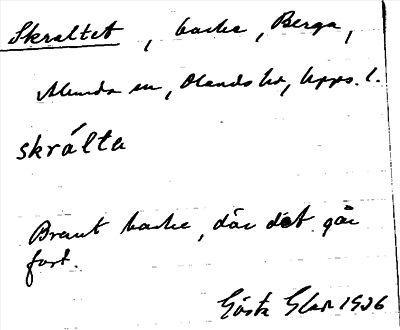 Skraltet, backe, Berga,
Almunda sn, Olands hd, Upps. l.
skrálta
Brant backe, där det går
fort.
Gösta 1926